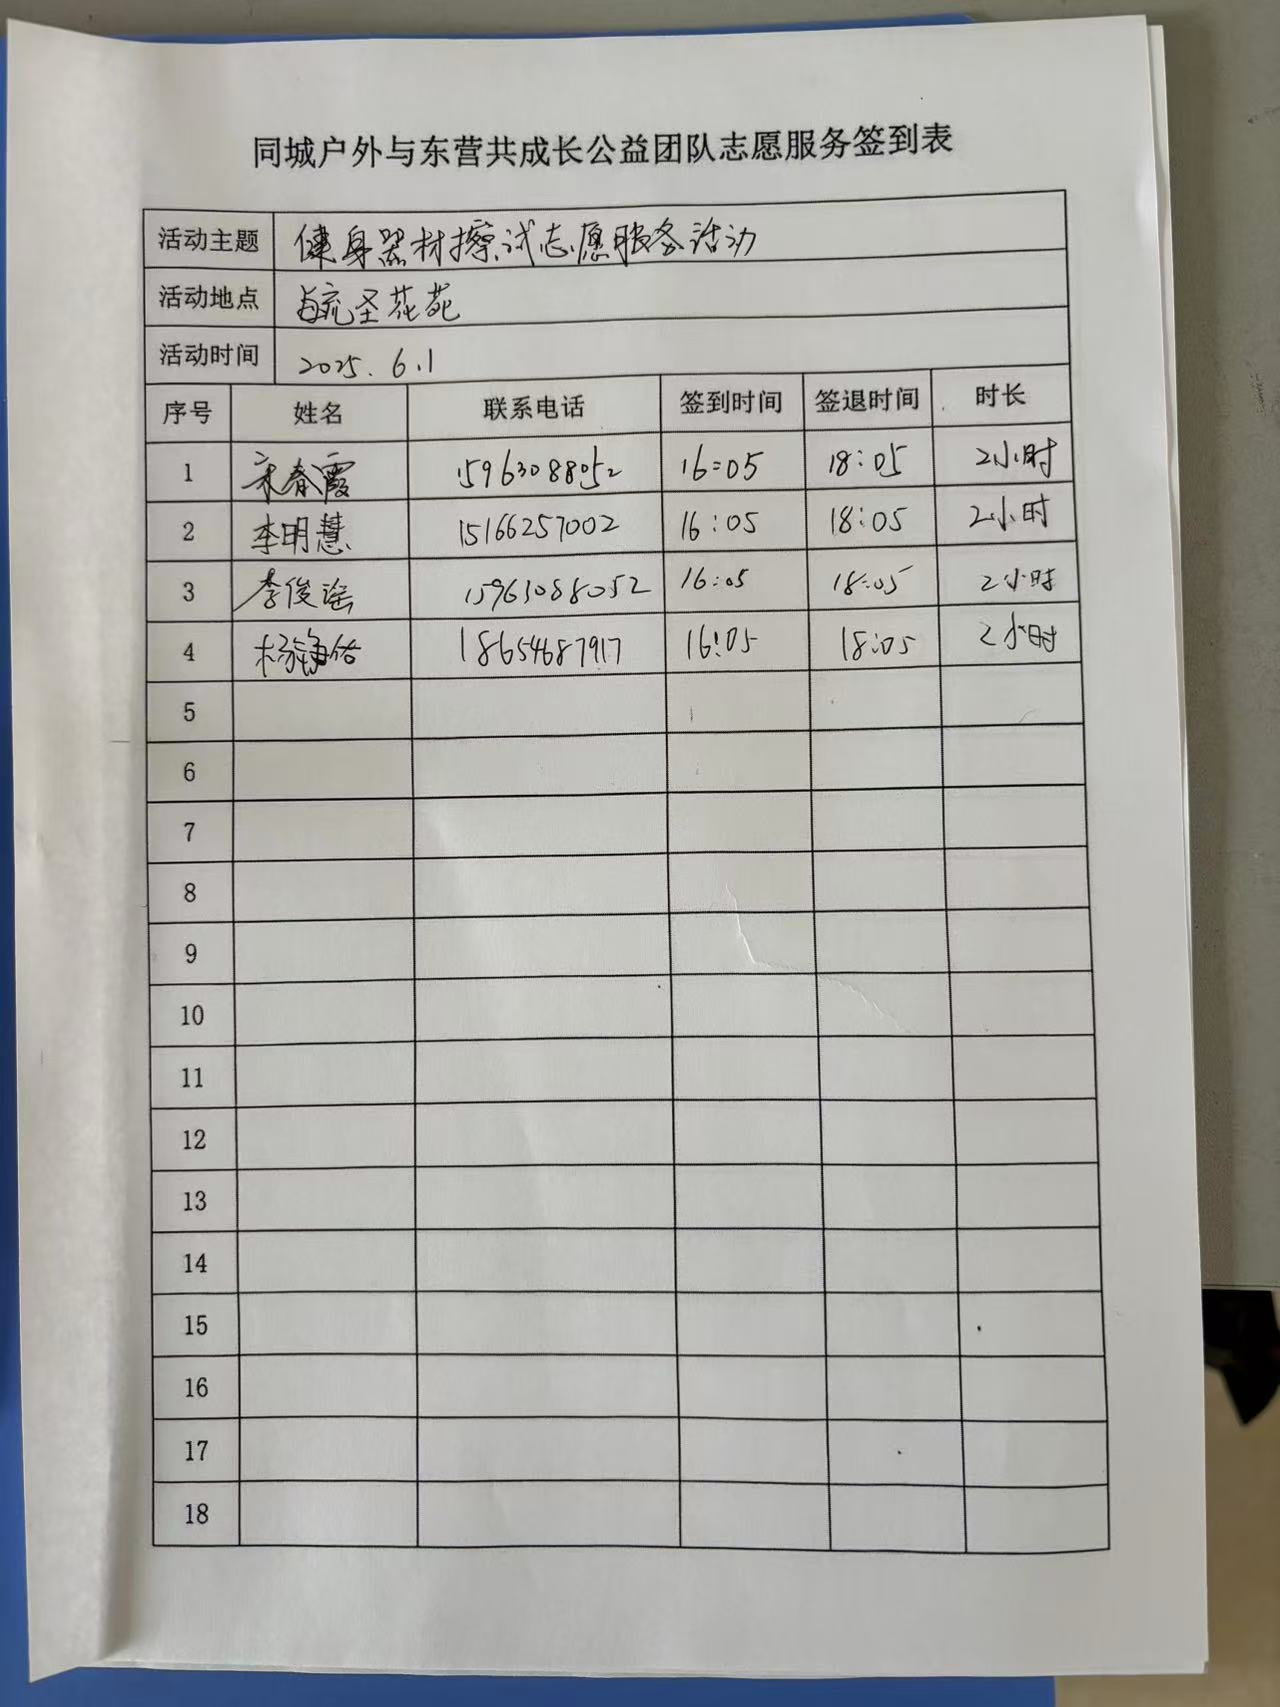 同城户外与东营共成长公益团队志愿服务签到表
活动主题 健身器材擦试志愿服务活动
活动地点 圣花苑
活动时间 2025.6.1
序号 姓名 联系电话 签到时间 签退时间 时长
1 宋春霞 15963088052 16:05 18:05 2小时
2 李明慧 15166257002 16:05 18:05 2小时
3 李俊谣 15963088052 16:05 18:05 2小时
4 18654687917 16:05 18:05 2小时
5
6
7
8
9
10
11
12
13
14
15
16
17
18